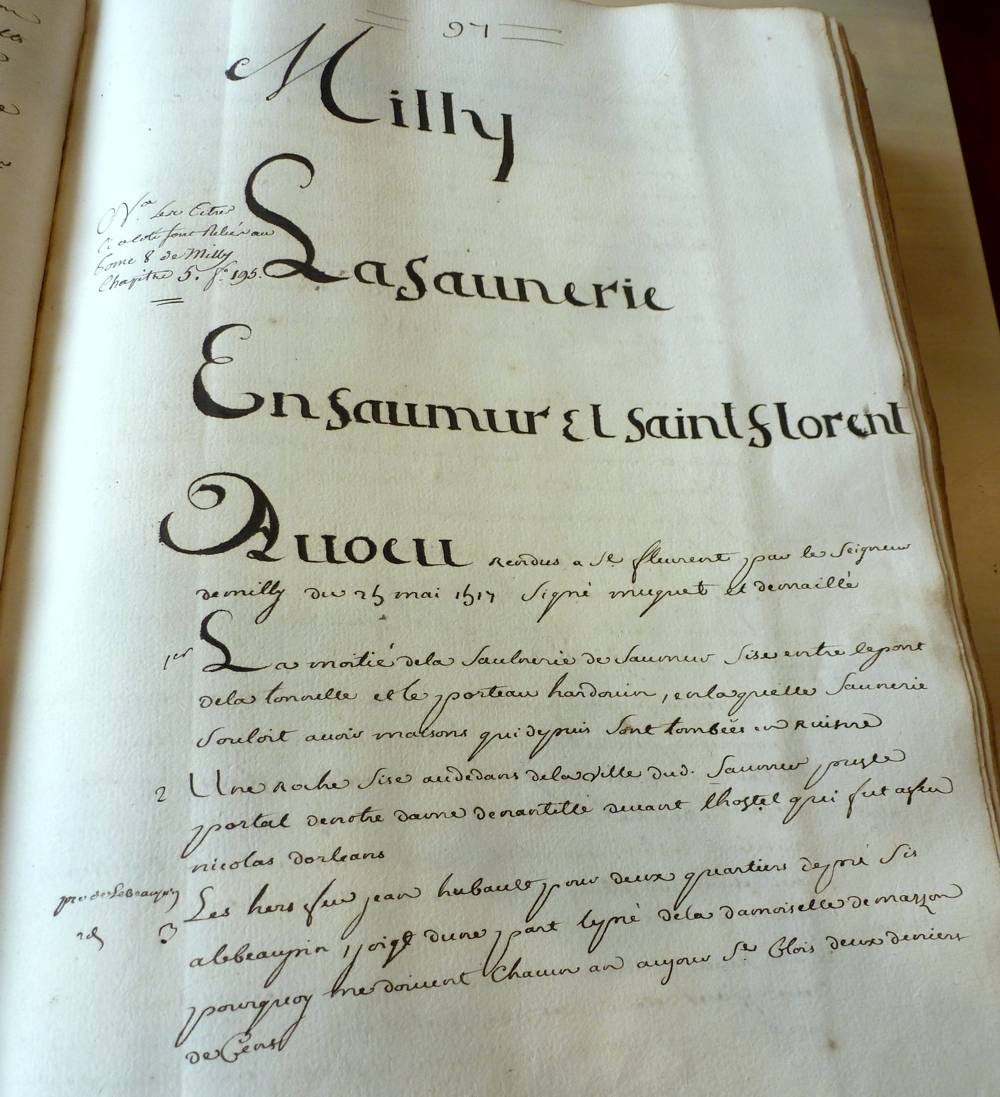 97
Milly
La saunerie
Na. Les titres
ci a coté sont Reliés au
tome 8 de Milly
Chapitre 5. fo. 195.
En saumur Et saint florent
Auocu rendus a St. fleurent par le Seigneur
de milly du 25 mai 1517 Signé muguet et demaillé
1er La moitié dela Saulnerie de Saumur Sise entre le pont
dela tonnelle et le porteau hardouin, en laquelle Saunerie
Souloit auoir maisons qui depuis Sont tombées en Ruisne
2 Une Roche Sise audedans dela Ville dud. Saumur pres le
portal de notre dame de nantillé deuant lhostel qui fut a feu
nicolas dorleans
pré de Lebeaupin
3 Les hers feu jean hubault pour deux quartiers de pré Sis
2d
a lebeaupin, joigt dune part le pré dela damoiselle de marson
pourquoy me doiuent Chacun an au jour St. Blois deux deniers
de Cens